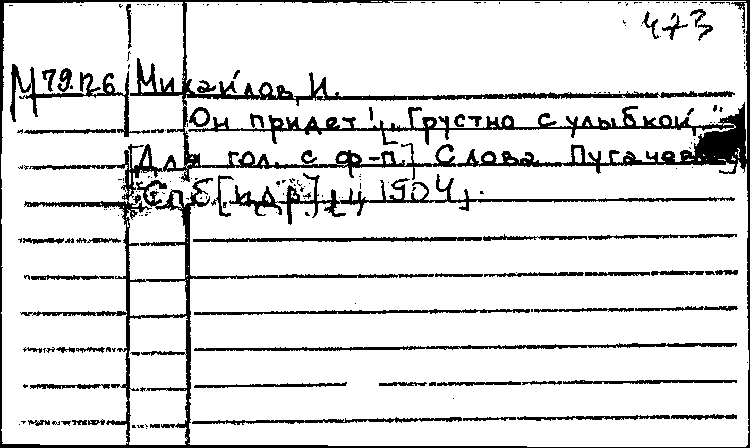 473
М79.126 Михайлов, И.
Он придет! „Грустно с улыбкой,"
[Для гол. с ф-п.] Слова Пугачев
Спб [и др.], 1904,.